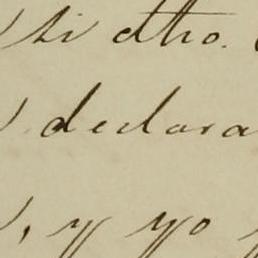 si dho.
declara
, y yo